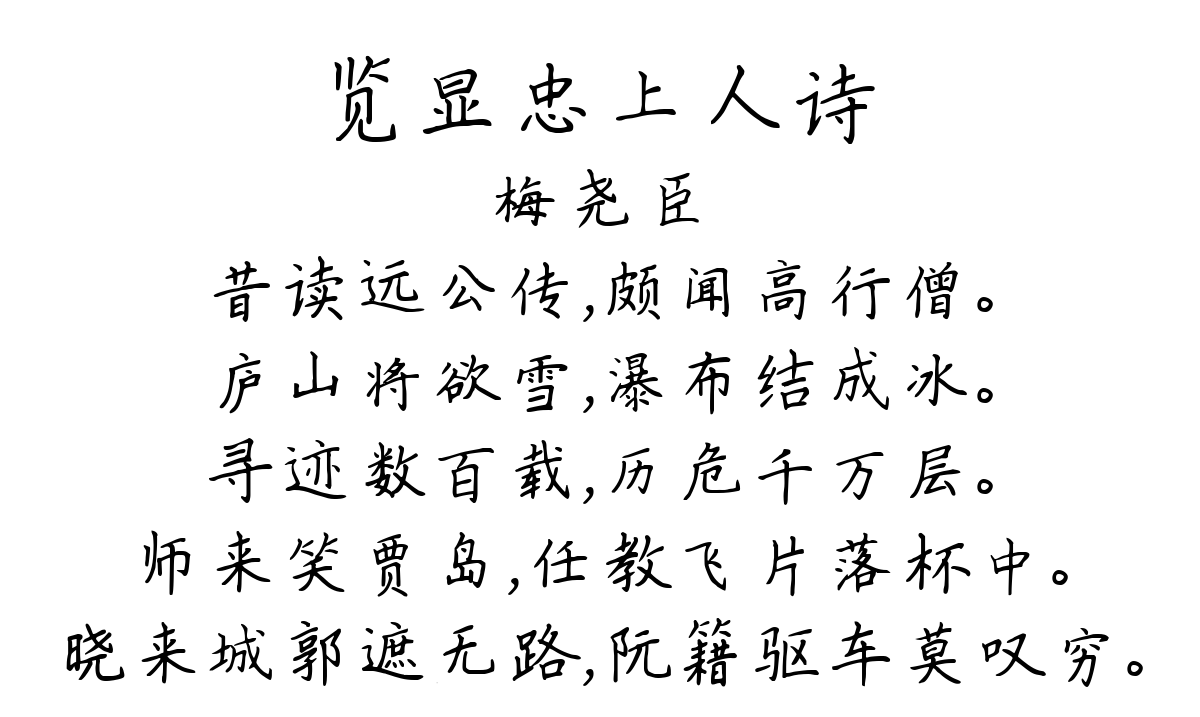 览显忠上人诗
梅尧臣
昔读远公传,颇闻高行僧。
庐山将欲雪,瀑布结成冰。
寻迹数百载,历危千万层。
师来笑贾岛,任教飞片落杯中。
晓来城郭遮无路,阮籍驱车莫叹穷。